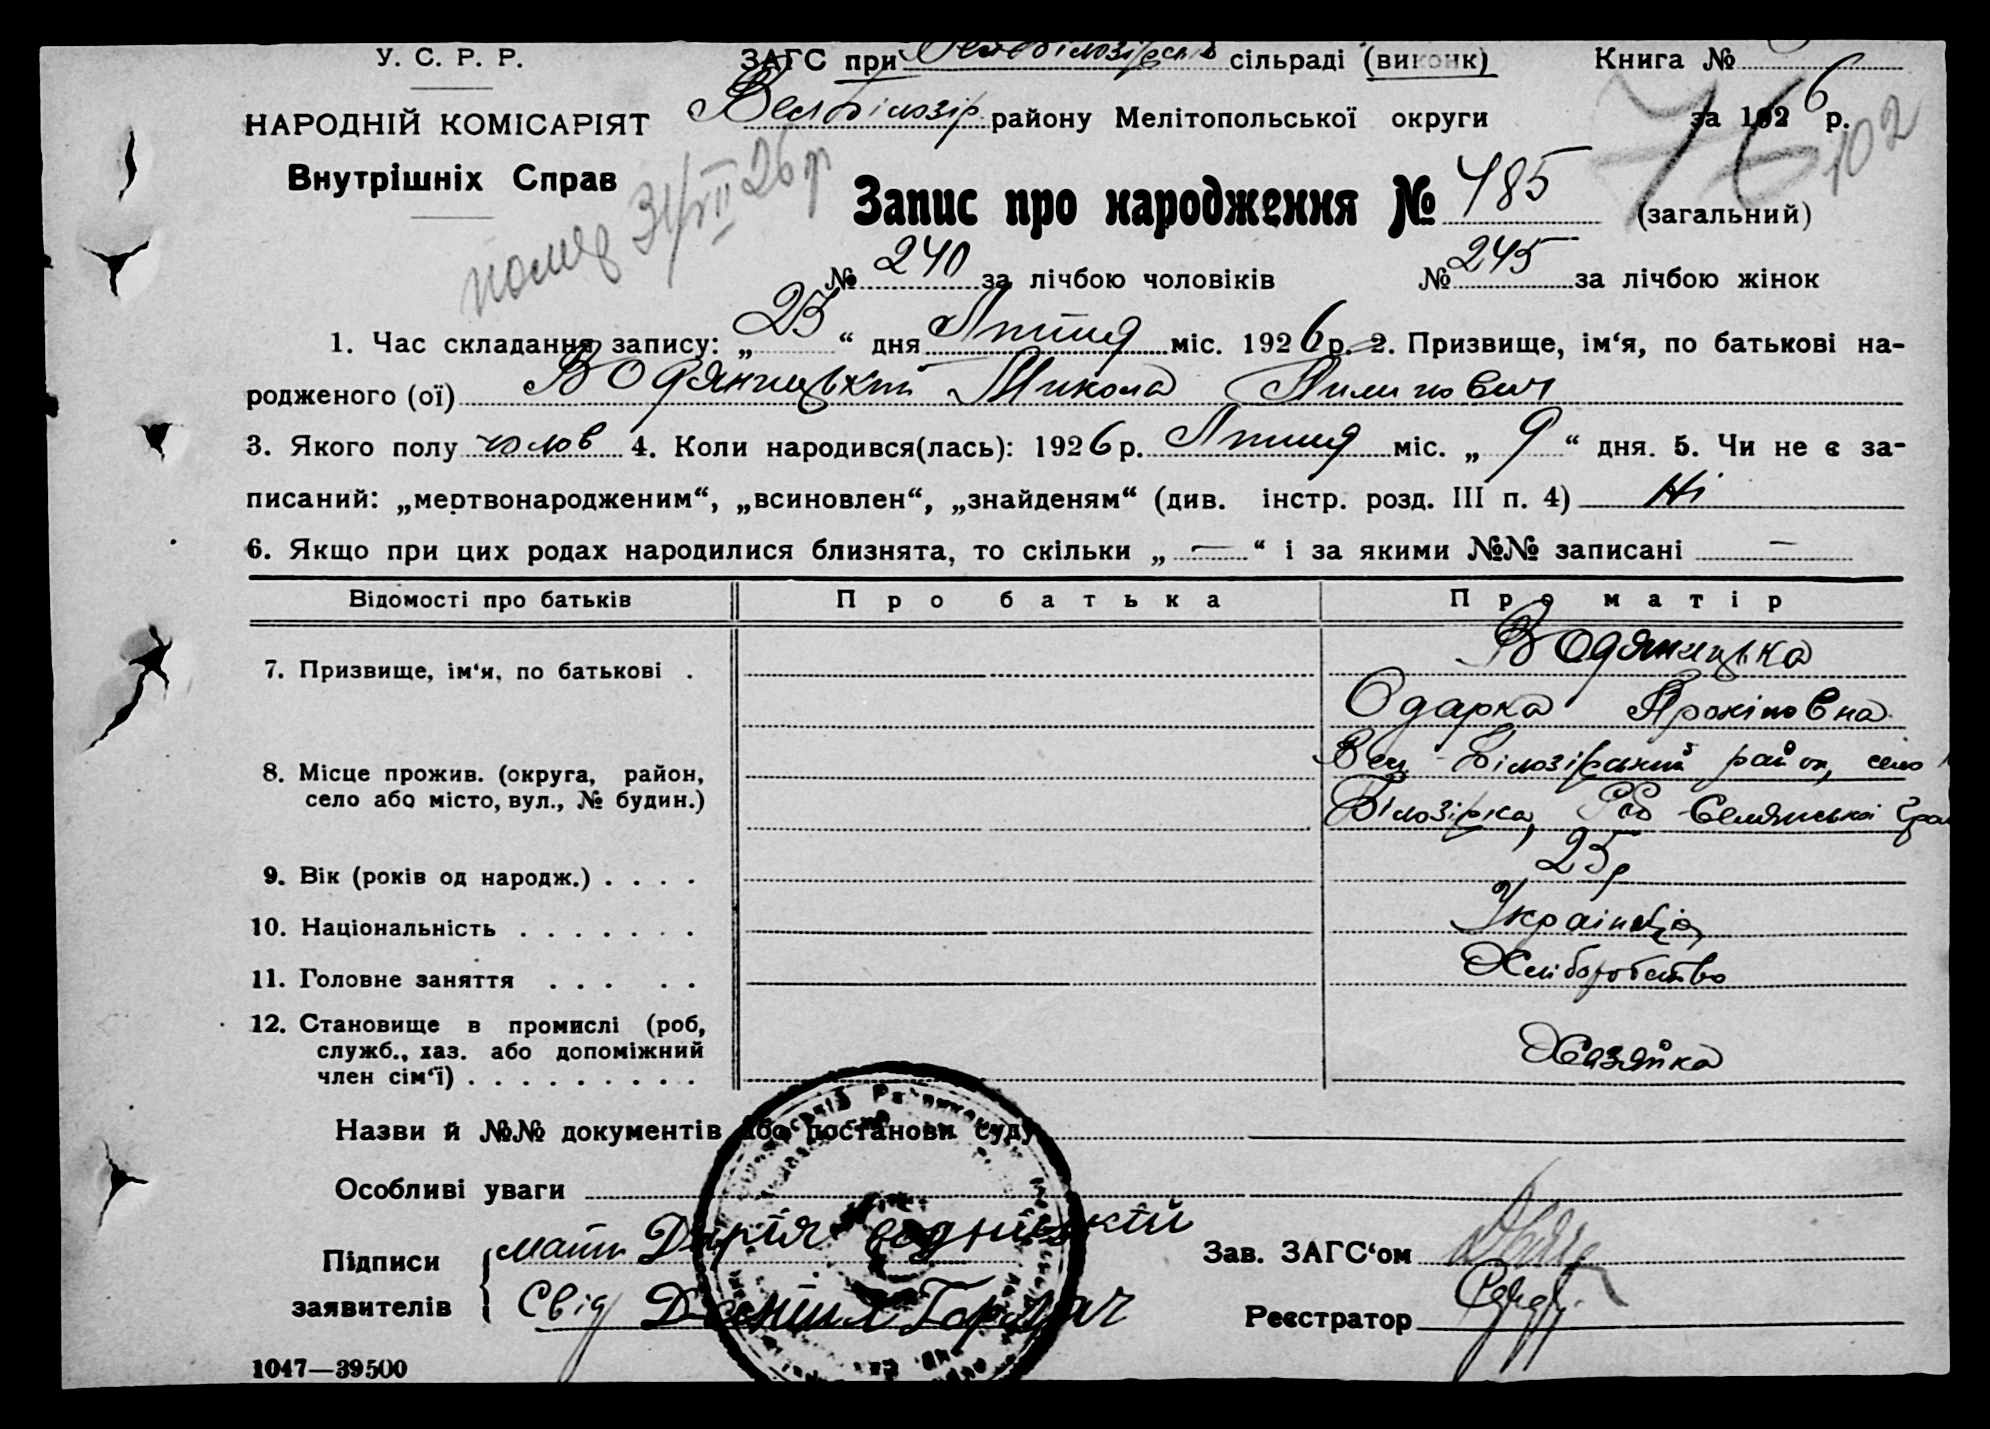 У. С. Р. Р. ЗАГС при Велбілозірськ сільраді (виконк) Книга №
НАРОДНІЙ КОМІСАРІЯТ Велбілозір. району Мелітопольської округи за 1926 р.
76 102
Внутрішніх Справ
помер 31/VII 26 р
Запис про народження № 485 (загальний)
№ 240 за лічбою чоловіків № 245 за лічбою жінок
1. Час складання запису: „25“ дня Липня міс. 1926 р. 2. Призвище, ім‘я, по батькові на-
родженого (ої) Водяницький Микола Пилипович
3. Якого полу чолов 4. Коли народився(лась): 1926 р. Липня міс. „9“ дня. 5. Чи не є за-
писаний: „мертвонародженим“, „всиновлен“, „знайденям“ (див. інстр. розд. III п. 4) Ні
6. Якщо при цих родах народилися близнята, то скільки „—“ і за якими №№ записані —
Відомості про батьків Про батька Про матір
Водяницька
7. Призвище, ім‘я, по батькові .
Одарка Прокіповна
8. Місце прожив. (округа, район, Вел Білозірський район, село
село або місто, вул., № будин.) Білозірка, Селянської гром
9. Вік (років од народж.) . . . . 25р
10. Національність . . . . . . . Українка
11. Головне заняття . . . . . Хліборобство
12. Становище в промислі (роб,
служб., хаз. або допоміжний Хазяйка
член сім‘ї) . . . . . . . . .
Назви й №№ документів або постанови суду
Особливі уваги
Підписи мати Дарія Зав. ЗАГС‘ом
заявителів Свід Данил Горпач Реєстратор
1047—39500